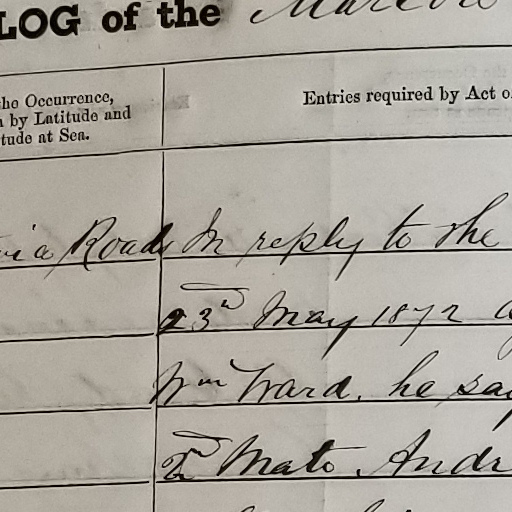 LOG of the
he Occurrence,
by Latitude and
tude at Sea.
Entries required by Act o
via Roads In reply to the
23d May 1872
Wm Ward, he say
2d Mate Andr